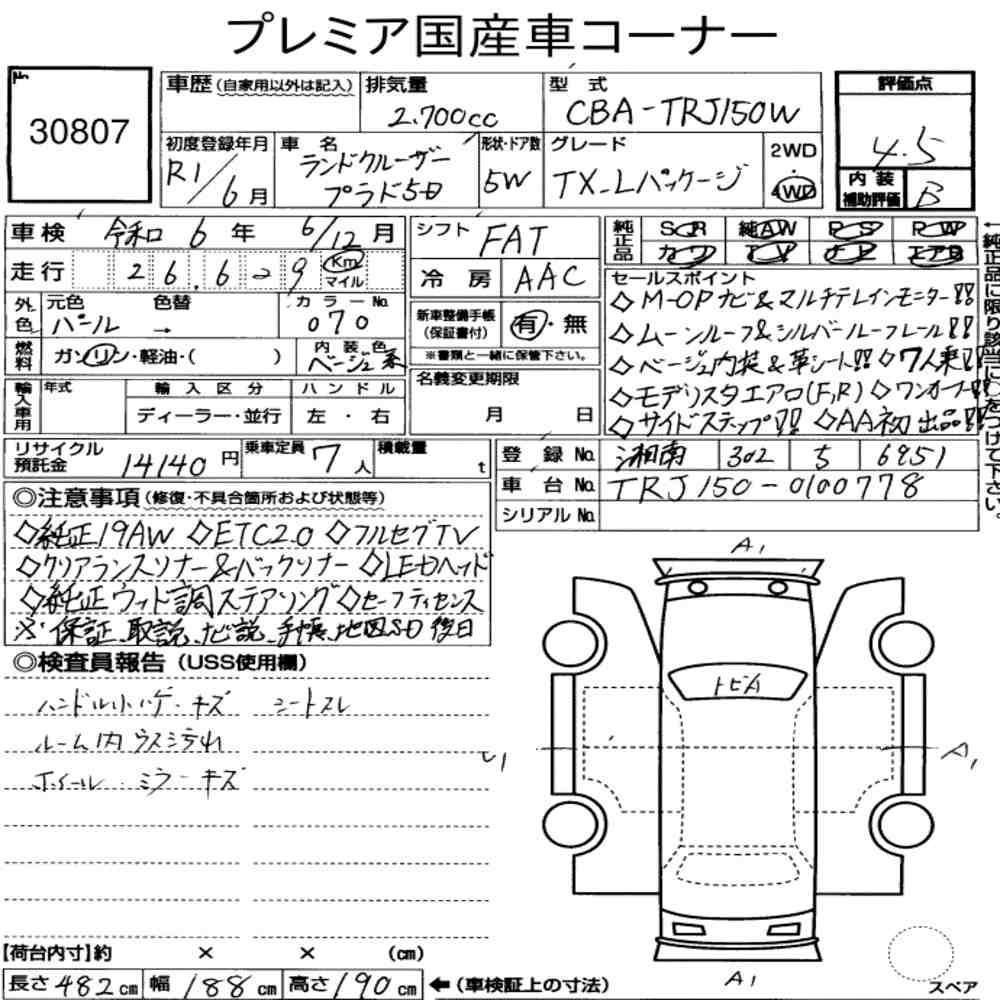 プレミア国産車コーナー
No
30807
車歴(自家用以外は記入)
排気量
2.700cc
型式
CBA-TRJ150W
評価点
4.5
内装
補助評価
B
初度登録年月
R1/6月
車名
ランドクルーザー
プラド5D
形状・ドア数
5W
グレード
TX-Lパッケージ
2WD
4WD
車検 令和 6年 6/12月
走行 26.609 Km
マイル
シフト FAT
冷房 AAC
純正品 SR 純AW PS PW
カワ TV ナビ エアB
←純正品に限り該当に○をつけて下さい。
外色 元色 色替 カラーNo.
パール → 070
燃料 ガソリン・軽油・( )
内装色
ベージュ系
新車整備手帳
(保証書付)
有・無
※書類と一緒に保管下さい。
輸入車用 年式 輸入区分 ハンドル
ディーラー・並行 左・右
名義変更期限
月 日
セールスポイント
◇M-OPナビ&マルチテレインモニター!!
◇ムーンルーフ&シルバールーフレール!!
◇ベージュ内装&革シート!! ◇7人乗!!
◇モデリスタエアロ(F,R) ◇ワンオーナー!!
◇サイドステップ!! ◇AA初出品!!
リサイクル
預託金 14140円
乗車定員 7人
積載量 t
登録No. 湘南 302 ち 6951
車台No. TRJ150-0100778
シリアルNo.
◎注意事項(修復・不具合箇所および状態等)
◇純正19AW ◇ETC2.0 ◇フルセグTV
◇クリアランスソナー&バックソナー ◇LEDヘッド
◇純正ウッド調ステアリング◇セーフティセンス
※保証、取説、ナビ説、手帳、地図SD後日
◎検査員報告(USS使用欄)
ハンドル小ハゲ・キズ シートスレ
ルーム内ウスシミ汚れ
ホイール・ミラーキズ
A1
トビA
A1
A1
スペア
【荷台内寸】約 × × (cm)
長さ482cm 幅188cm 高さ190cm ←(車検証上の寸法)